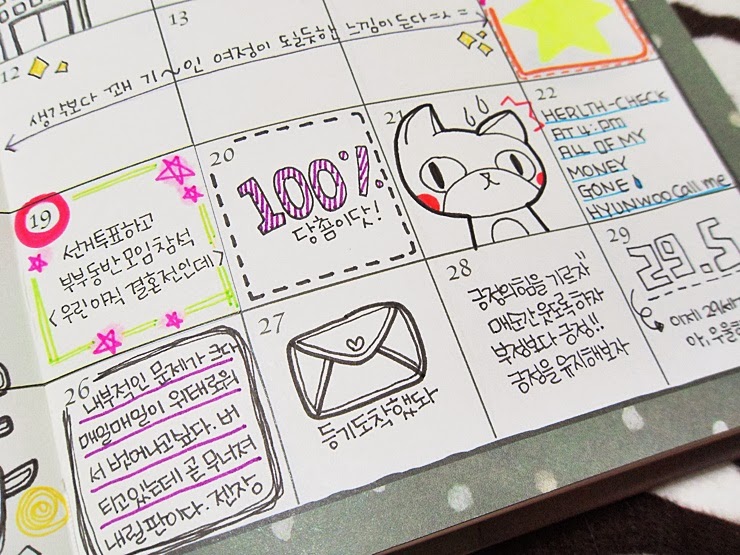 13
12
생각보다 꽤 기~인 여정이 느낌이 든다=ㅅ=
19
선거투표하고
부부동반 모임 참석
<우린 아직 결혼전인데>
20
100%
당첨이닷!
21
22
HEALTH-CHECK
AT 4:PM
ALL OF MY
MONEY
GONE
HYUNWOO call me
26
내부적인 문제가 크다
매일매일이 위태로워
서 벗어나고싶다. 버
티고있는데 곧 무너져
내릴판이다. 젠장
27
등기도착했돠
28
긍정의힘을 기르자"
매순간 웃도록하자
부정보다 긍정!!
긍정을 유지해보자
29
29.5
이제 29세
아, 우울